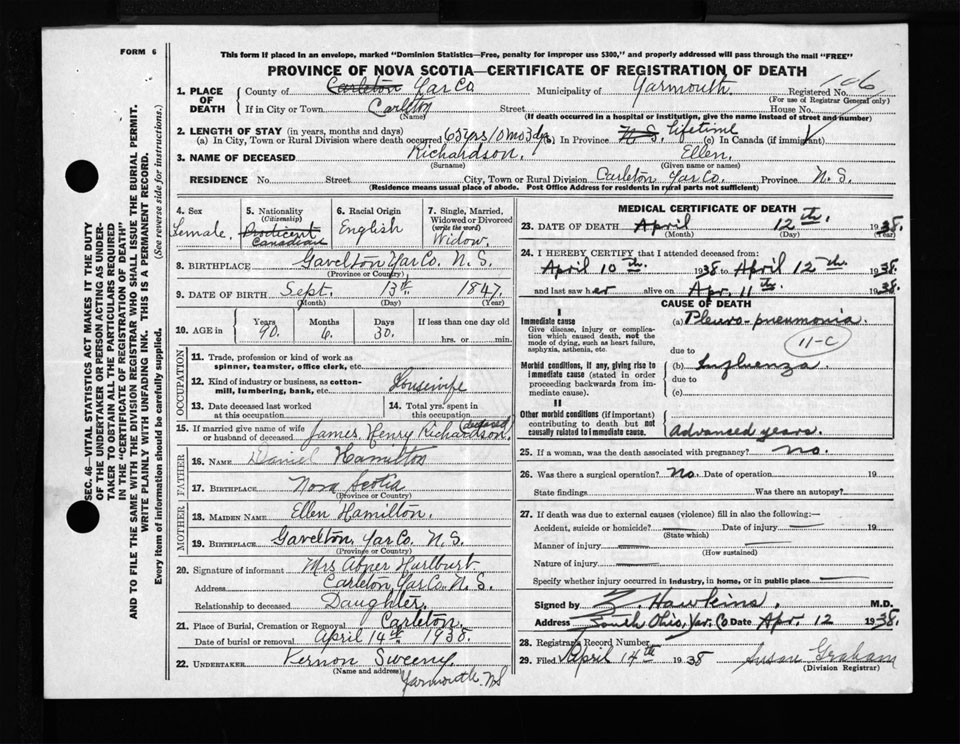 FORM 6
This form if placed in an envelope, marked "Dominion Statistics—Free, penalty for improper use $300," and properly addressed will pass through the mail "FREE"
PROVINCE OF NOVA SCOTIA—CERTIFICATE OF REGISTRATION OF DEATH
SEC. 46—VITAL STATISTICS ACT MAKES IT THE DUTY
OF THE UNDERTAKER OR PERSON ACTING AS UNDER-
TAKER TO OBTAIN ALL THE PARTICULARS REQUIRED
IN THE "CERTIFICATE OF REGISTRATION OF DEATH"
AND TO FILE THE SAME WITH THE DIVISION REGISTRAR WHO SHALL ISSUE THE BURIAL PERMIT.
WRITE PLAINLY WITH UNFADING INK. THIS IS A PERMANENT RECORD.
Every item of information should be carefully supplied. (See reverse side for instructions.)
1. PLACE OF DEATH County of Carleton Yar Co Municipality of Yarmouth. Registered No. 106
(For use of Registrar General only)
If in City or Town Carleton Street House No.
(Name) (If death occurred in a hospital or institution, give the name instead of street and number)
2. LENGTH OF STAY (in years, months and days)
(a) In City, Town or Rural Division where death occurred 63 yrs 10 mo 3 dys (b) In Province N.S. lifetime (c) In Canada (if immigrant)
3. NAME OF DECEASED Richardson, Ellen.
(Surname) (Given name or names)
RESIDENCE No. Street City, Town or Rural Division Carleton Yar Co. Province N.S.
(Residence means usual place of abode. Post Office Address for residents in rural parts not sufficient)
4. Sex Female.
5. Nationality (Citizenship) Canadian
6. Racial Origin English
7. Single, Married, Widowed or Divorced (write the word) Widow.
8. BIRTHPLACE Gavelton Yar Co. N.S.
(Province or Country)
9. DATE OF BIRTH Sept. 13th 1847.
(Month) (Day) (Year)
10. AGE in Years 90. Months 6. Days 30. If less than one day old hrs. or min.
OCCUPATION
11. Trade, profession or kind of work as spinner, teamster, office clerk, etc.
12. Kind of industry or business, as cotton-mill, lumbering, bank, etc. Housewife
13. Date deceased last worked at this occupation
14. Total yrs. spent in this occupation
15. If married give name of wife or husband of deceased James Henry Richardson (deceased)
FATHER
16. NAME Daniel Hamilton
17. BIRTHPLACE Nova Scotia
(Province or Country)
MOTHER
18. MAIDEN NAME Ellen Hamilton.
19. BIRTHPLACE Gavelton, Yar Co. N.S.
(Province or Country)
20. Signature of informant Mrs Abner Hurlburt
Address Carleton, Yar Co. N.S.
Relationship to deceased Daughter.
21. Place of Burial, Cremation or Removal Carleton.
Date of burial or removal April 14th 1938.
22. UNDERTAKER Vernon Sweeny
(Name and address) Yarmouth. N.S
MEDICAL CERTIFICATE OF DEATH
23. DATE OF DEATH April 12th. 1938.
(Month) (Day) (Year)
24. I HEREBY CERTIFY that I attended deceased from:
April 10th. 1938 to April 12th. 1938.
and last saw her alive on Apr. 11th. 1938.
CAUSE OF DEATH
I
Immediate cause
Give disease, injury or complication which caused death, not the mode of dying, such as heart failure, asphyxia, asthenia, etc.
(a) Pleuro-pneumonia.
11-C
due to
Morbid conditions, if any, giving rise to immediate cause (stated in order proceeding backwards from immediate cause).
(b) Influenza.
due to
(c)
II
Other morbid conditions (if important) contributing to death but not causally related to immediate cause.
Advanced years.
25. If a woman, was the death associated with pregnancy? no.
26. Was there a surgical operation? No. Date of operation 19
State findings Was there an autopsy?
27. If death was due to external causes (violence) fill in also the following:—
Accident, suicide or homicide? Date of injury 19
(State which)
Manner of injury
(How sustained)
Nature of injury
Specify whether injury occurred in industry, in home, or in public place
Signed by Z. Hawkins, M.D.
Address South Ohio, Yar. Co Date Apr. 12 1938.
28. Registrar's Record Number
29. Filed April 14th 1938 Susan Graham
(Division Registrar)